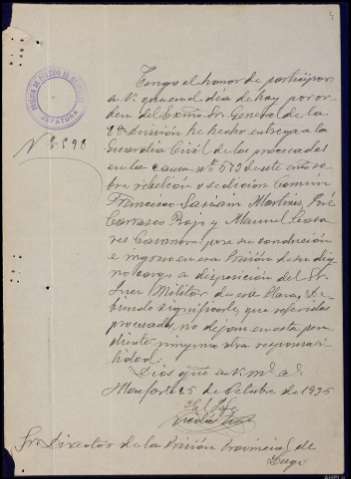 JEFATURA
Tengo el honor de participar
a V. que en el día de hoy por or-
den del Excmo Sr. General de la
8ª división he hecho entrega a la
Guardia Civil de los procesados
en la causa nº 573 de este año so-
bre rebelión o sedición Común
Francisco Martínez, José
Carrasco Rojo y Manuel Casa-
res Casanova para su conducción
e ingreso en esa Prisión de su dig-
no cargo a disposición del Sr.
Juez Militar de esta Plaza, De-
biendo significarle, que referidos
procesados, no dejan en esta pen-
diente ninguna otra responsabi-
lidad.
Dios que a V. m. a.
Monforte 25 de Octubre de 1935
El Jefe
Sr. Director de la Prisión Provincial de
Lugo